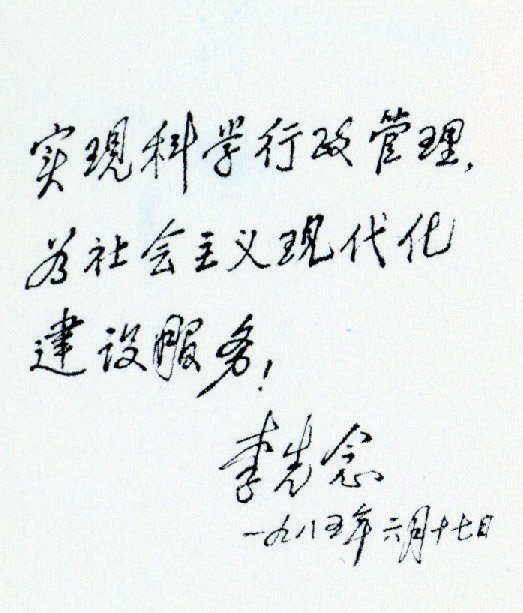 实现科学行政管理，
为社会主义现代化
建设服务！
李先念
一九八五年六月十七日